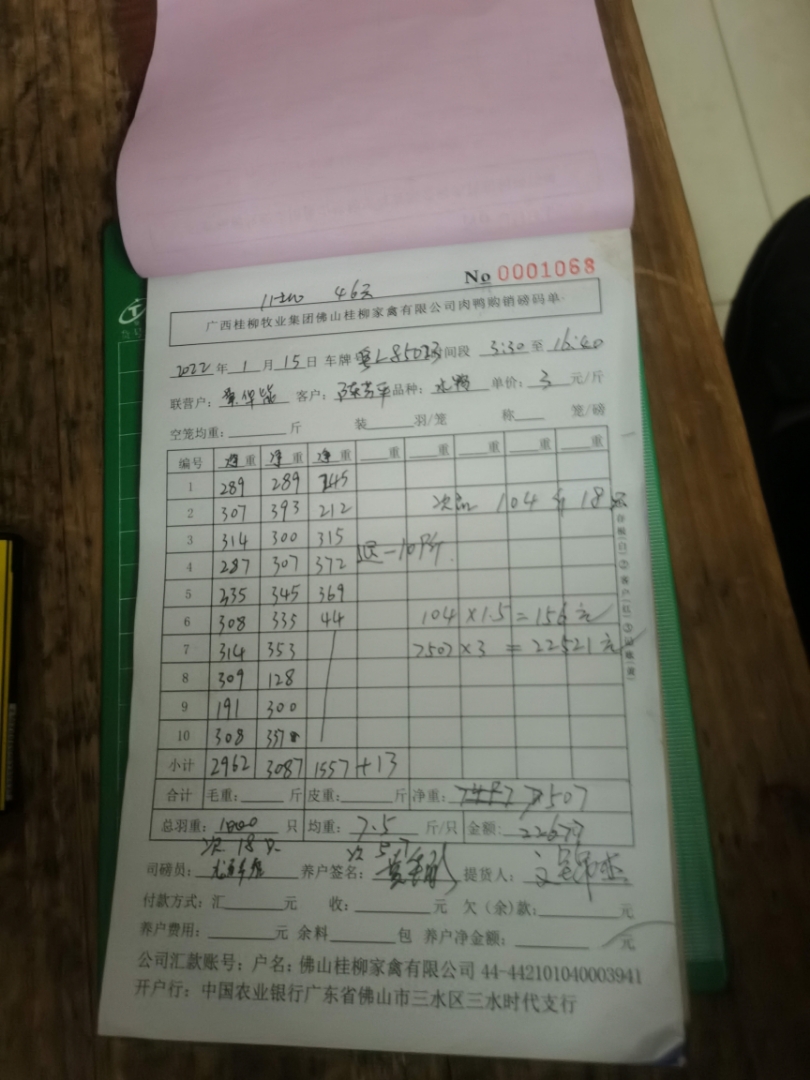 No 0001068
46天
广西桂柳牧业集团佛山桂柳家禽有限公司肉鸭购销磅码单
2022 年 1 月 15 日 车牌 粤L85023 间段 3:30 至 16:40
联营户： 客户： 品种： 水鸭 单价： 3 元/斤
空笼均重： 斤 装 羽/笼 称 笼/磅
编号 净重 净重 净重 重 重 重 重 重
1 289 289 245
2 307 393 212 次 104 斤 18只
3 314 300 315
4 287 307 372 退一10
5 335 345 369
6 308 335 44 104×1.5=156元
7 314 353 7507×3=22521元
8 309 128
9 191 300
10 308 357
小计 2962 3087 1557+13
合计 毛重： 斤 皮重： 斤 净重： 7507
总羽重： 1000 只 均重： 7.5 斤/只 金额： 22677
次 18只 次 5.7
司磅员： 养户签名： 提货人：
付款方式：汇 元 收： 元 欠（余）款： 元
养户费用： 元 余料 包 养户净金额： 元
公司汇款账号：户名：佛山桂柳家禽有限公司 44-442101040003941
开户行：中国农业银行广东省佛山市三水区三水时代支行